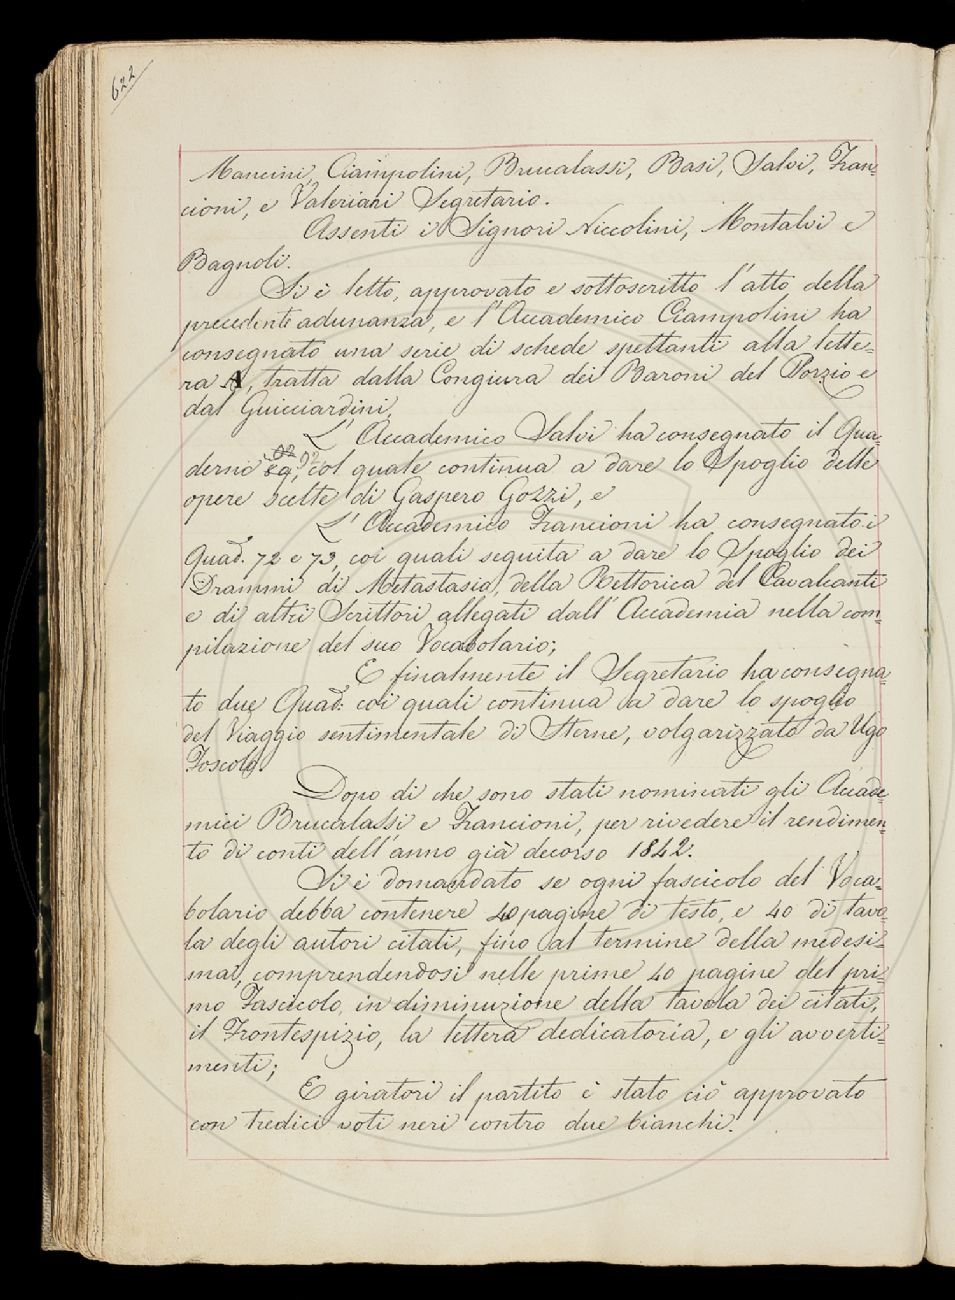 622
Mancini, Ciampolini, Brucalassi, Basi, Salvi, Fran=
cioni, e Valeriani Segretario.
Assenti i Signori Niccolini, Montalvi e
Bagnoli.
Si è letto, approvato e sottoscritto l'atto della
precedente adunanza, e l'Accademico Ciampolini ha
consegnato una serie di schede spettanti alla lette=
ra A, tratta dalla Congiura dei Baroni del Porzio e
dal Guicciardini.
L'Accademico Salvi ha consegnato il Qua=
derno 92, col quale continua a dare lo Spoglio delle
opere scelte di Gaspero Gozzi, e
L'Accademico Francioni ha consegnato i
Quad. 72 e 73, coi quali seguita a dare lo Spoglio dei
Drammi di Metastasio, della Rettorica del Cavalcanti
e di altri Scrittori allegati dall'Accademia nella com=
pilazione del suo Vocabolario;
E finalmente il Segretario ha consegna=
to due Quad: coi quali continua a dare lo spoglio
del Viaggio sentimentale di Sterne, volgarizzato da Ugo
Foscolo.
Dopo di che sono stati nominati gli Accade=
mici Brucalassi e Francioni, per rivedere il rendimen=
to di conti dell'anno già decorso 1842.
Si è domandato se ogni fascicolo del Voca=
bolario debba contenere 40 pagine di testo, e 40 di tavo=
la degli autori citati, fino al termine della medesi=
ma, comprendendosi nelle prime 40 pagine del pri=
mo Fascicolo, in diminuzione della tavola dei citati,
il Frontespizio, la lettera dedicatoria, e gli avverti=
menti;
E giratori il partito è stato ciò approvato
con tredici voti neri contro due bianchi.